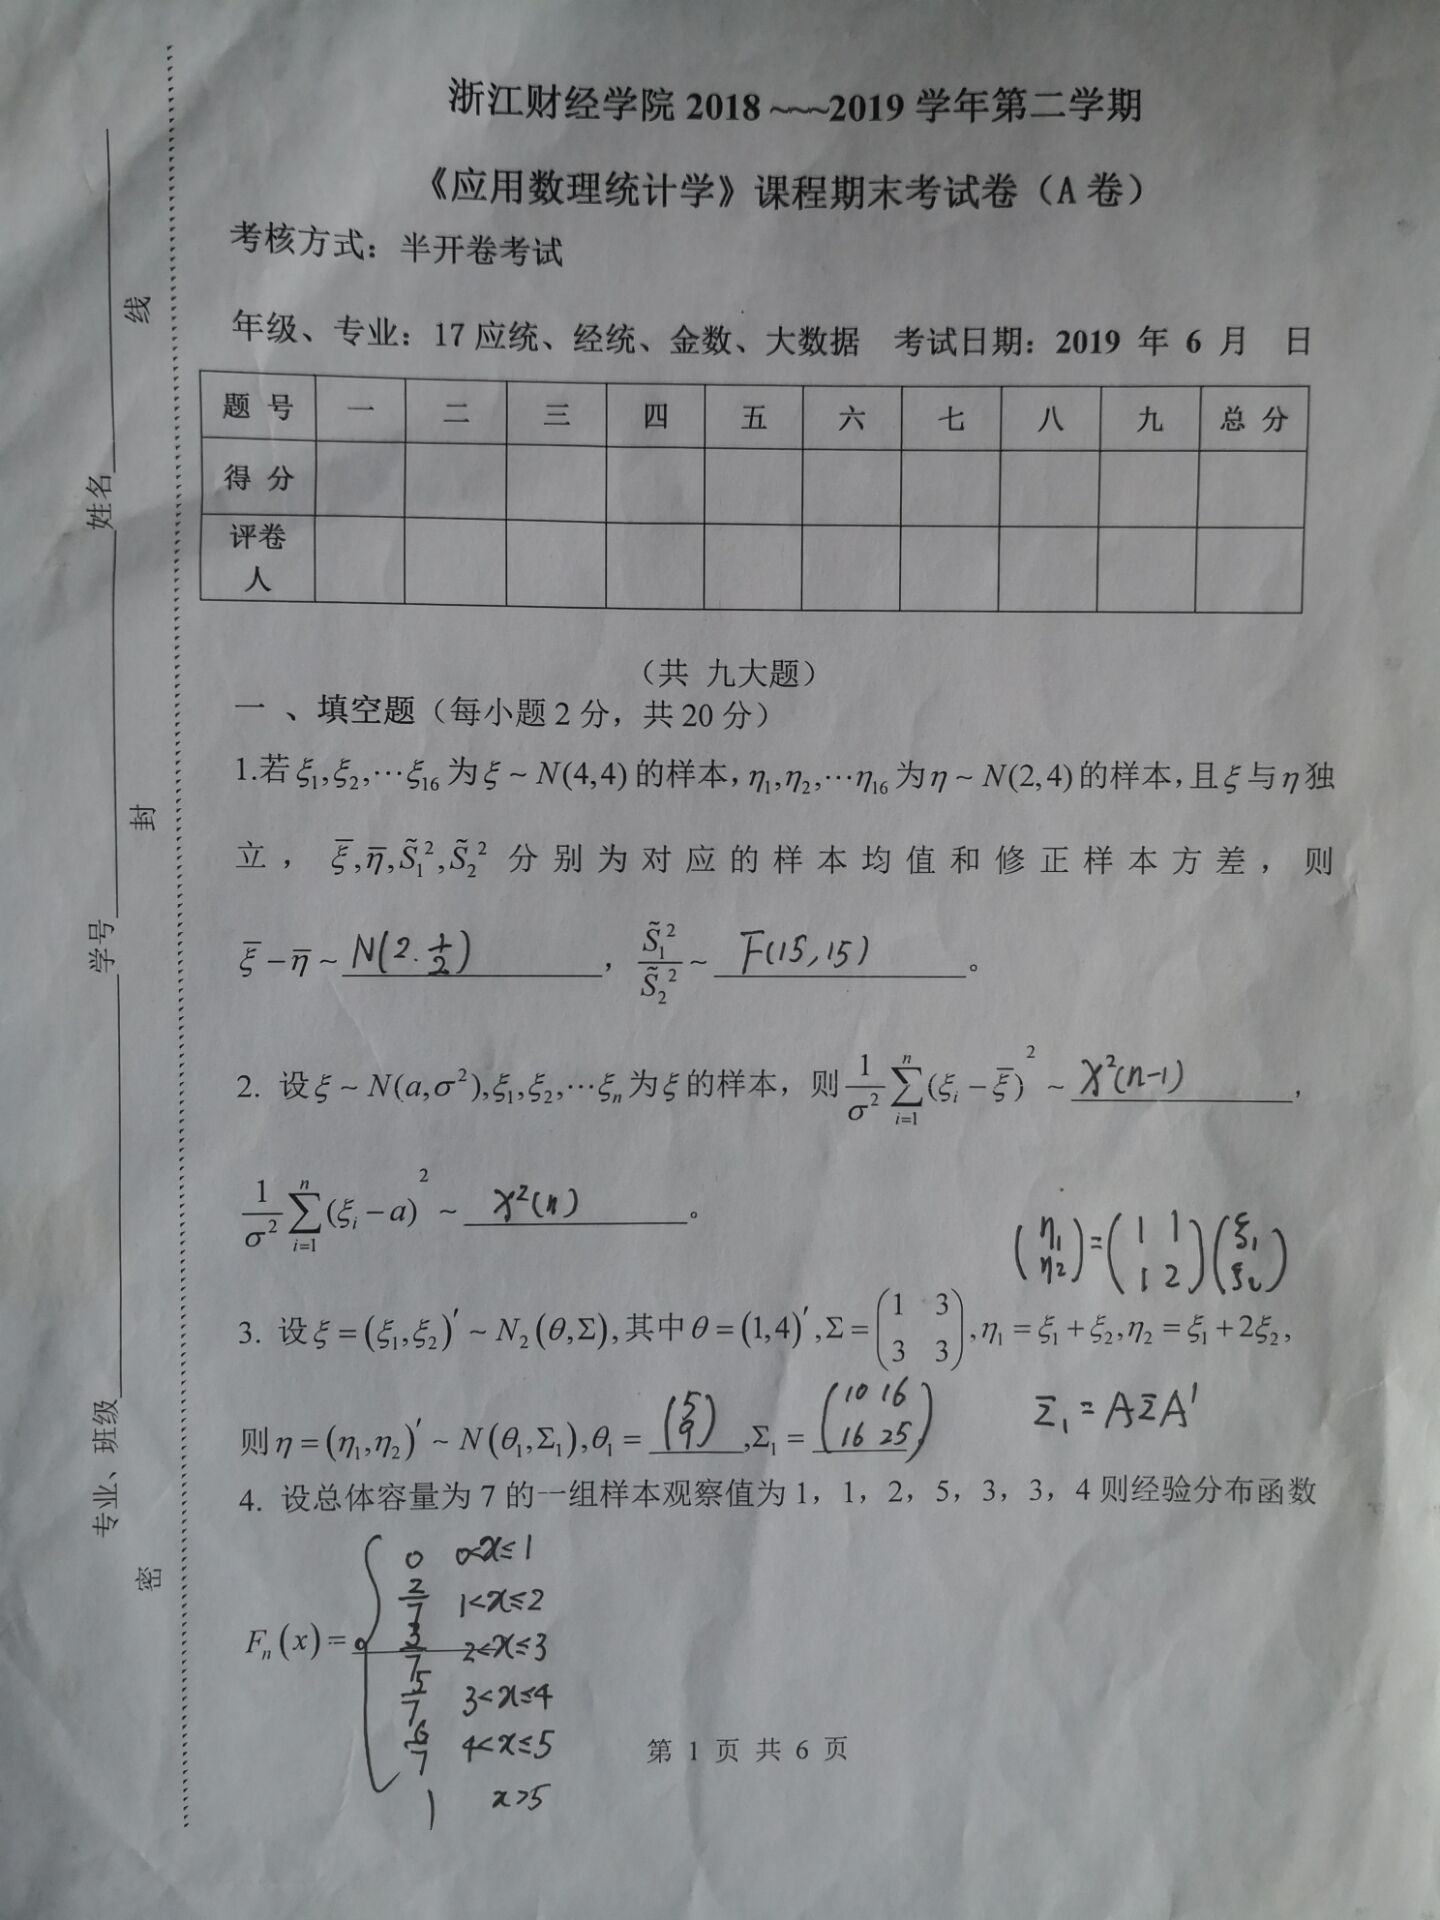 浙江财经学院 2018 ~~~2019 学年第二学期
《应用数理统计学》课程期末考试卷（A 卷）
考核方式：半开卷考试
年级、专业：17 应统、经统、金数、大数据 考试日期：2019 年 6 月 日
题 号 一 二 三 四 五 六 七 八 九 总 分
得 分
评卷人
（共 九大题）
一 、填空题（每小题 2 分，共 20 分）
1.若 ξ₁,ξ₂,⋯ξ₁₆ 为 ξ ~ N(4,4) 的样本，η₁,η₂,⋯η₁₆ 为 η ~ N(2,4) 的样本，且 ξ 与 η 独
立， ξ̄,η̄,S̃₁²,S̃₂² 分别为对应的样本均值和修正样本方差，则
ξ̄ − η̄ ~ N(2. 1/2) ， S̃₁²/S̃₂² ~ F(15,15) 。
2. 设 ξ ~ N(a,σ²),ξ₁,ξ₂,⋯ξₙ 为 ξ 的样本，则 1/σ² ∑ᵢ₌₁ⁿ (ξᵢ − ξ̄)² ~ χ²(n-1) ,
1/σ² ∑ᵢ₌₁ⁿ (ξᵢ − a)² ~ χ²(n) 。
(η₁ η₂) = (1 1 1 2)(ξ₁ ξ₂)
3. 设 ξ = (ξ₁,ξ₂)′ ~ N₂(θ,Σ), 其中 θ = (1,4)′, Σ = (1 3 3 3), η₁ = ξ₁ + ξ₂, η₂ = ξ₁ + 2ξ₂,
则 η = (η₁,η₂)′ ~ N(θ₁,Σ₁), θ₁ = (5 9) , Σ₁ = (10 16 16 25) ,
Σ₁ = AΣA′
4. 设总体容量为 7 的一组样本观察值为 1，1，2，5，3，3，4 则经验分布函数
Fₙ(x) =
0 0<x≤1
2/7 1<x≤2
3/7 2<x≤3
5/7 3<x≤4
6/7 4<x≤5
1 x>5
第 1 页 共 6 页
专业、班级
学号
姓名
密
封
线